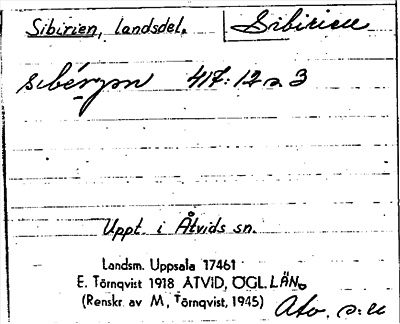 Sibirien, landsdel. Sibirien
sibérjən 417:12 a 3
Uppt. i Åtvids sn.
Landsm. Uppsala 17461
E. Törnqvist 1918 ÅTVID, ÖGL. LÄN.
(Renskr. av M. Törnqvist, 1945)